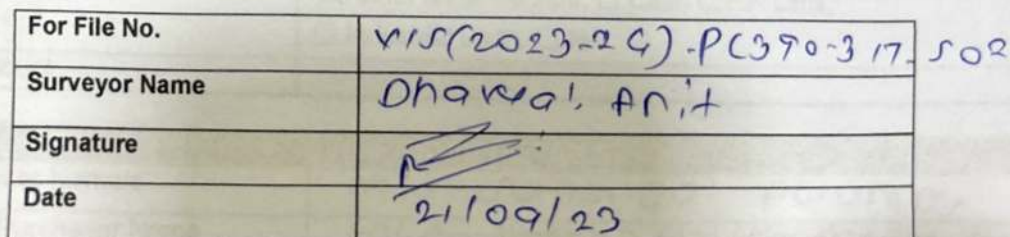 For File No. VIS(2023-24)-PC390-317-502
Surveyor Name Dhawal, Anit
Signature
Date 21/09/23